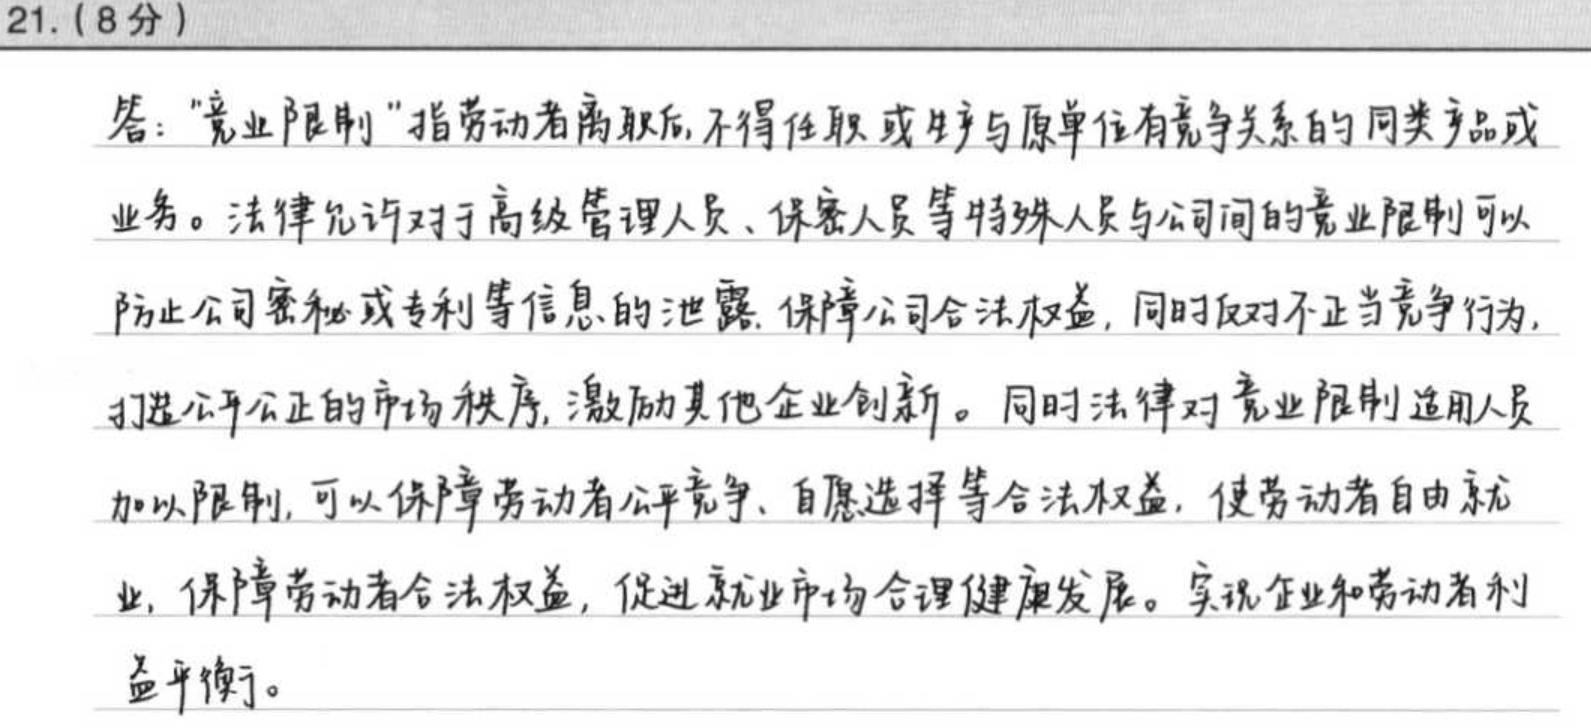 21.(8分)
答："竞业限制"指劳动者离职后,不得任职或生产与原单位有竞争关系的同类产品或
业务。法律允许对于高级管理人员、保密人员等特殊人员与公司间的竞业限制可以
防止公司密秘或专利等信息的泄露.保障公司合法权益,同时反对不正当竞争行为,
打造公平公正的市场秩序,激励其他企业创新。同时法律对竞业限制适用人员
加以限制,可以保障劳动者公平竞争、自愿选择等合法权益,使劳动者自由就
业,保障劳动者合法权益,促进就业市场合理健康发展。实现企业和劳动者利
益平衡。